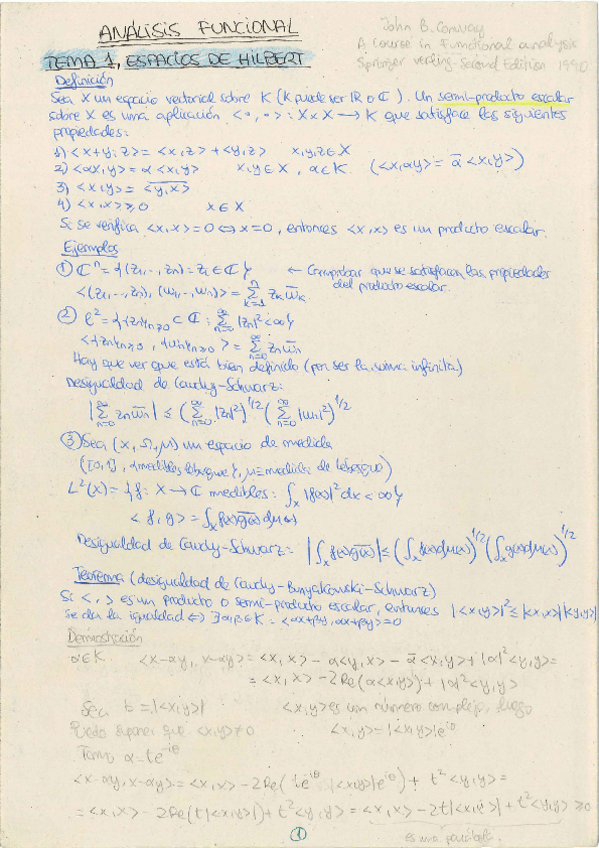 ANÁLISIS FUNCIONAL
John B. Conway
A Course in Functional analysis
Springer verling-Second Edition 1990
TEMA 1, ESPACIOS DE HILBERT
Definición
Sea X un espacio vectorial sobre K (K puede ser ℝ o ℂ). Un semi-producto escalar
sobre X es una aplicación <·,·>: X×X → K que satisface las siguientes
propiedades:
1) <x+y,z> = <x,z> + <y,z>   x,y,z ∈ X
2) <αx,y> = α<x,y>   x,y ∈ X, α ∈ K. (<x,αy> = ᾱ<x,y>)
3) <x,y> = \overline{<y,x>}
4) <x,x> ≥ 0   x ∈ X
Si se verifica <x,x> = 0 ⇔ x = 0, entonces <x,x> es un producto escalar.
Ejemplos
① ℂⁿ = {(z₁,..,zₙ) = zᵢ ∈ ℂ} ← Comprobar que se satisfacen las propiedades
del producto escalar.
<(z₁,..,zₙ), (w₁,..,wₙ)> = Σ_{k=1}^n z_k \overline{w}_k
② ℓ² = {{zₙ}_{n≥0} ⊂ ℂ : Σ_{n=0}^∞ |zₙ|² < ∞}
<{zₙ}_{n≥0}, {wₙ}_{n≥0}> = Σ_{n=0}^∞ zₙ \overline{wₙ}
Hay que ver que está bien definido (por ser la suma infinita)
Desigualdad de Cauchy-Schwarz:
|Σ_{n=0}^∞ zₙ \overline{wₙ}| ≤ (Σ_{n=0}^∞ |zₙ|²)^{1/2} (Σ_{n=0}^∞ |wₙ|²)^{1/2}
③ Sea (X, Ω, μ) un espacio de medida
([0,1], {medibles lebesgue}, μ = medida de Lebesgue)
L²(X) = {f: X → ℂ medibles: ∫_X |f(x)|² dx < ∞}
<f,g> = ∫_X f(x)\overline{g(x)} dμ(x)
Desigualdad de Cauchy-Schwarz: |∫_X f(x)\overline{g(x)}| ≤ (∫_X f(x)dμ(x))^{1/2} (∫_X g(x)dμ(x))^{1/2}
Teorema (desigualdad de Cauchy-Bunyakowski-Schwarz)
Si <,> es un producto o semi-producto escalar, entonces |<x,y>|² ≤ |<x,x>||<y,y>|
Se da la igualdad ⇔ ∃ α,β ∈ K = <αx+βy, αx+βy> = 0
Demostración
α ∈ K. <x-αy, x-αy> = <x,x> - α<y,x> - ᾱ<x,y> + |α|²<y,y> =
= <x,x> - 2Re(α<x,y>) + |α|²<y,y>
Sea b = |<x,y>|   <x,y> es un número complejo, luego
Puedo suponer que <x,y> ≠ 0   <x,y> = |<x,y>|e^{iθ}
Tomo α = te^{-iθ}
<x-αy, x-αy> = <x,x> - 2Re(te^{iθ}|<x,y>|e^{iθ}) + t²<y,y> =
= <x,x> - 2Re(t|<x,y>|) + t²<y,y> = <x,x> - 2t|<x,y>| + t²<y,y> ≥ 0
es una parábola.
①